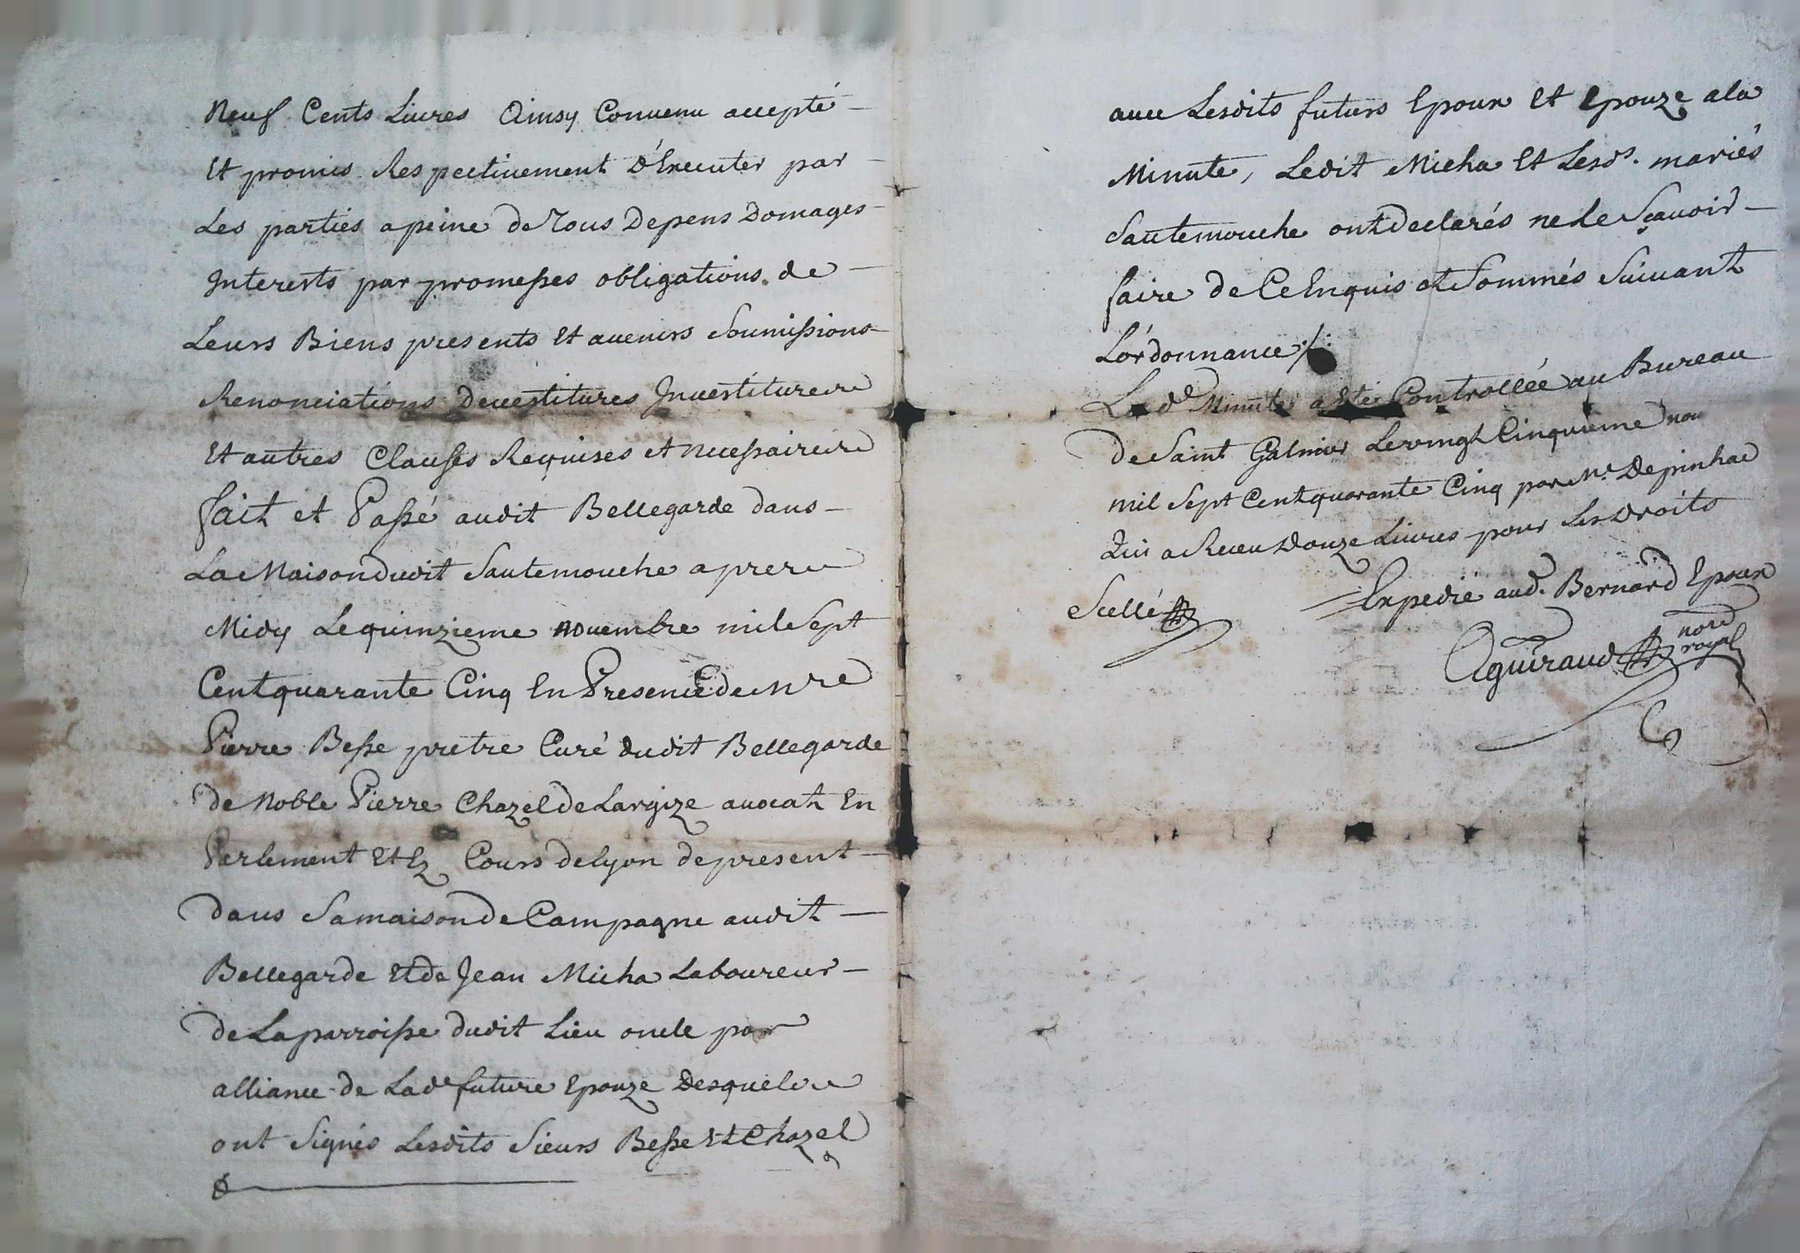 Neuf Cents Livres Ainsy Convenu accepté
Et promis Respectivement d'Executer par
Les parties a peine de Tous Depens Domages
Interests par promesses obligations de
Leurs Biens presents Et avenirs Soumissions
Renonciations Devestitures Investitures
Et autres Clauses Requises et necessaires
fait et Passé audit Bellegarde dans
La Maison dudit Sautemouche apres
Midy Le quinzieme novembre mil Sept
Cent quarante Cinq En Presence de Mre
Pierre Besse pretre Curé dudit Bellegarde
de Noble Pierre Chazel de Largize avocat En
Parlement Et Ez Cours de Lyon de present
dans Sa maison de Campagne audit
Bellegarde Et de Jean Micha Laboureur
de La parroisse dudit Lieu oncle par
alliance de Lade future Epouze Desquels
ont Signés Lesdits Sieurs Besse Et Chazel
avec Lesdits futurs Epoux Et Epouze a la
Minute, Ledit Micha Et Lesds. mariés
Sautemouche ont Declarés ne Le Sçavoir
faire de Ce Enquis et Sommés Suivant
L'ordonnance ./.
La de Minute a Eté Controllée au Bureau
de Saint Galmier Le vingt Cinquieme nov
mil Sept Cent quarante Cinq par Mr. Depinhac
Qui a Receu Douze Livres pour Les Droits
Scellé
Expedié aud. Bernard Epoux
Aguiraud nore
royal